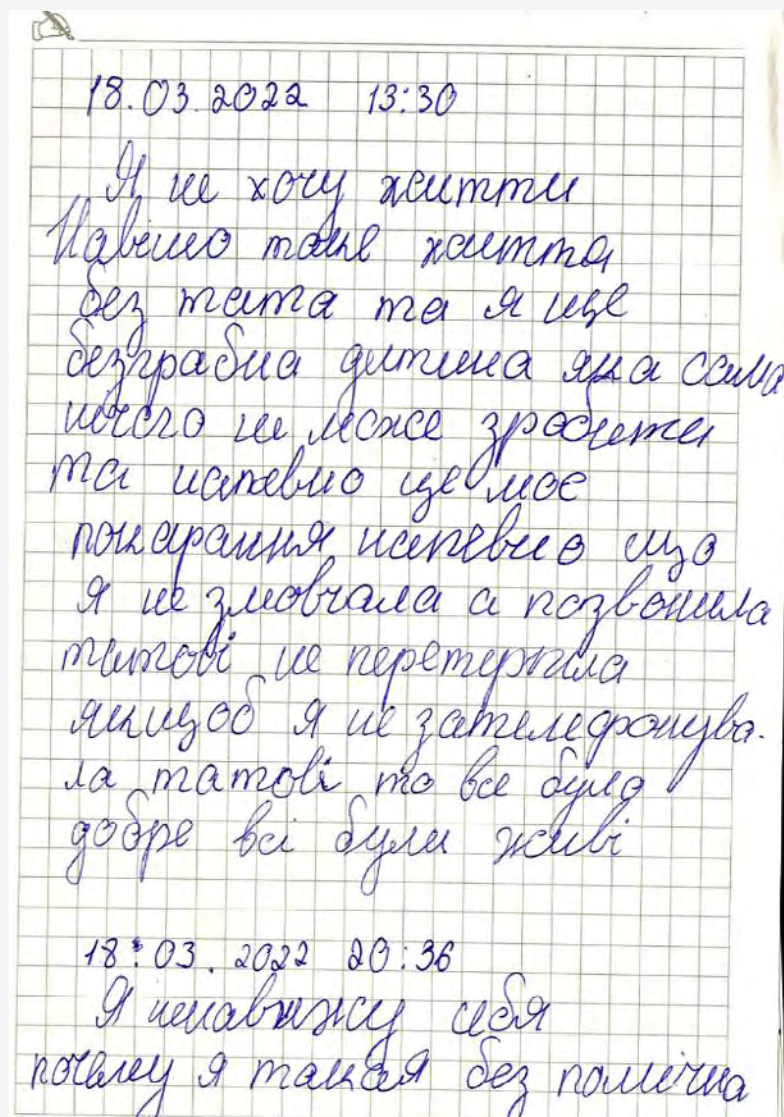 18.03.2022 13:30
Я не хочу життя
Навіщо таке життя
без тата та я ще
безграбна дитина яка сама
нічого не може зробити
та напевно це моє
покарання напевно що
я не змовчала а позвонила
татові не перетерпила
якщоб я не зателефонува-
ла татові то все було
добре всі були живі
18.03.2022 20:36
Я ненавижу себя
почему я такая без помічна